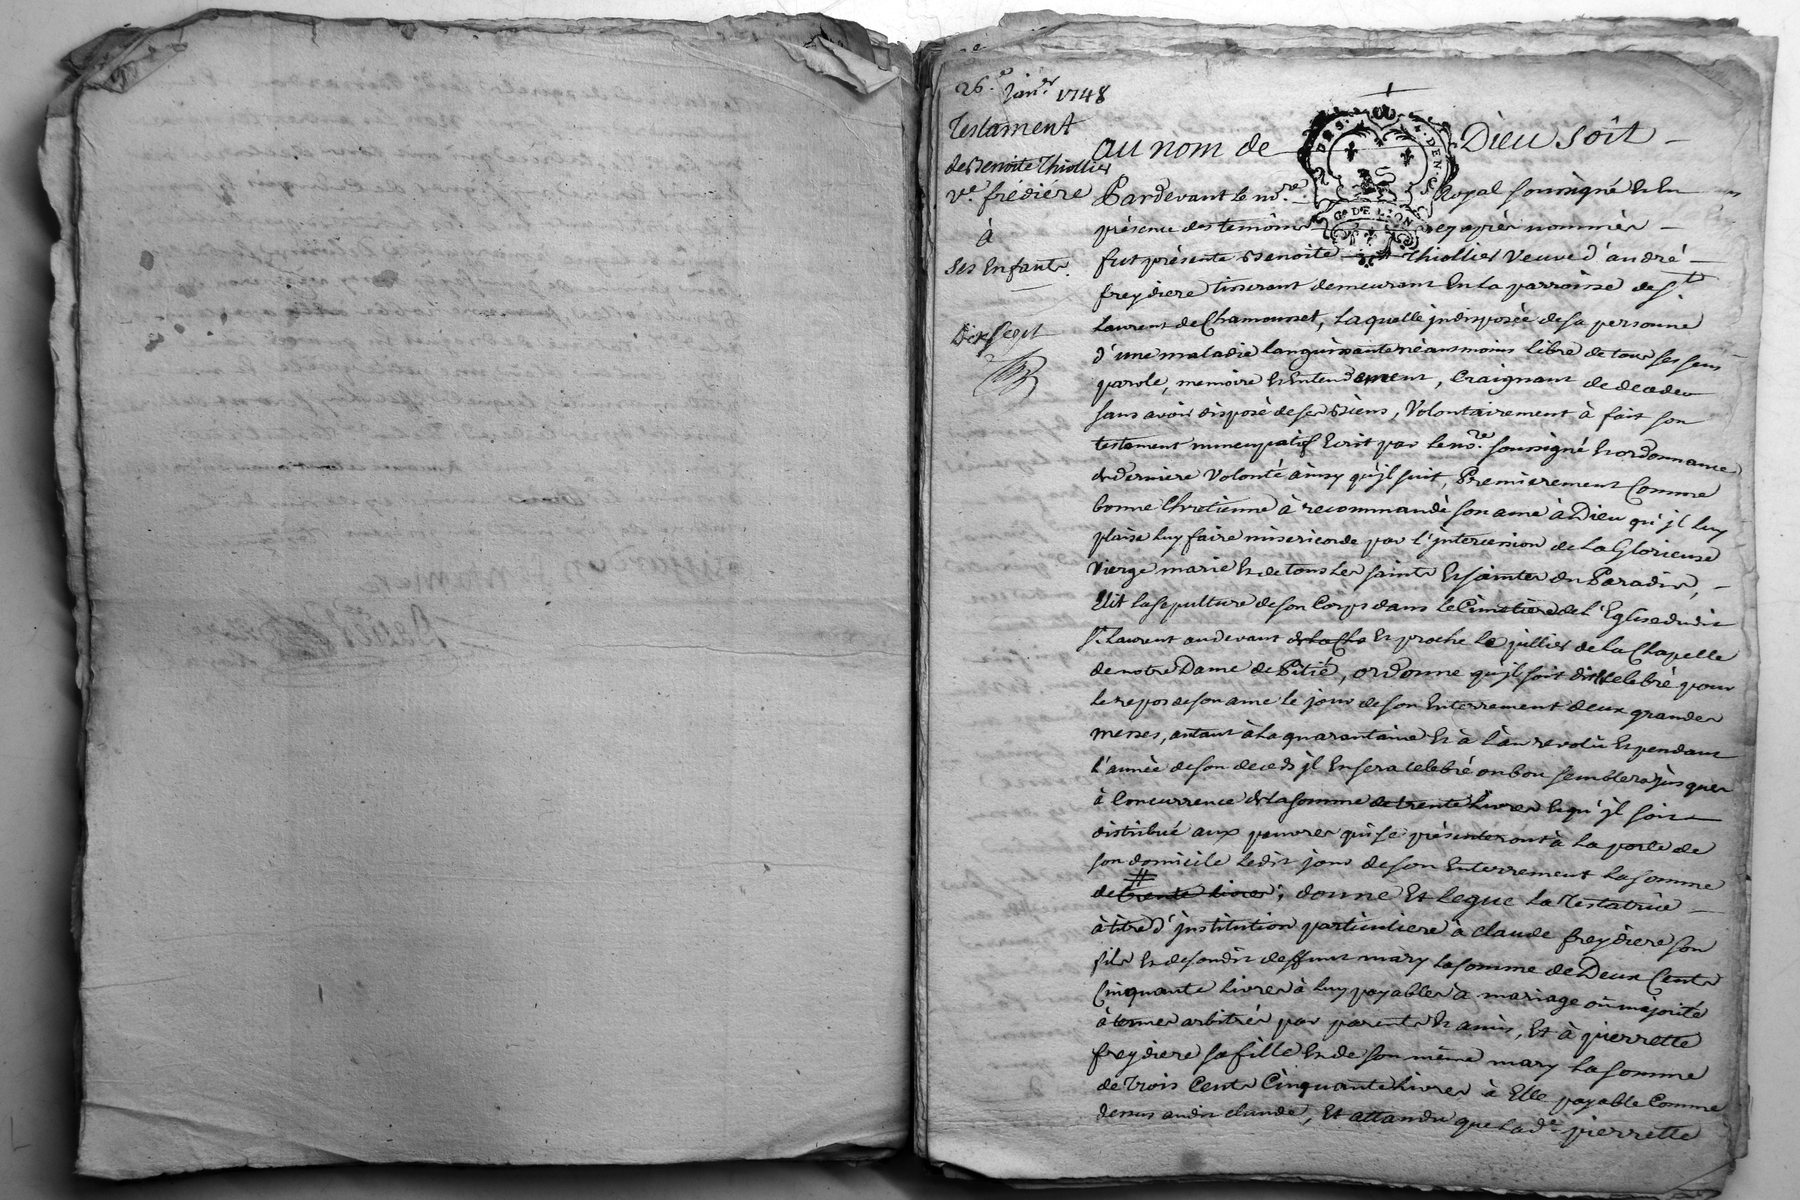 26.e janr. 1748
Testament
de Benoite Thiollier
ve. fredière
à
ses Enfants.
DE LION
au nom de Dieu soit
Pardevant le nore. Royal soussigné Et En
présence des temoins cy après nommés
fut présente Benoite Thiollier veuve d'andré
freydiere tisserant demeurant En La parroisse de St.
Laurent de Chamousset, Laquelle jndisposée de sa personne
d'une maladie languissante néansmoins libre de tous ses sens
parole, memoire Et Entendement, Craignant de deceder
sans avoir disposé de ses Biens, Volontairement à fait son
testament nuncupatif Ecrit par le nore. soussigné Et ordonnance
de derniere Volonté ainsy qu'jl suit, Premierement Comme
bonne Chretienne à recommandé son ame à Dieu qu'jl luy
plaise luy faire misericorde par l'jntercession de La Glorieuse
Vierge marie Et de tous Les saints Et saintes du Paradis,
Elit la sepulture de son Corps dans le Cimetiere de l'Eglise dudit
St. Laurent au devant de la Cha Et proche Le pillier de La Chapelle
de notre Dame de Pitié, ordonne qu'jl soit dit Celebré pour
le repos de son ame le jour de son Enterrement deux grandes
messes, autant à La quarantaine Et à l'an revolu Et pendant
l'année de son deceds jl En sera celebré ou bon semblera jusques
à Concurrence de la somme de trente livres Et qu'jl soit
distribué aux pauvres qui se présenteront à La porte de
son domicile ledit jour de son Enterrement La somme
de trente livres, donne Et Legue La Testatrice
à titre d'jnstitution particuliere à claude freydiere son
fils Et de sondit deffunt mary la somme de Deux Cents
Cinquante Livres à luy payables à mariage ou majorité
à termes arbitrés par parents Et amis, Et à pierrette
freydiere sa fille Et de son même mary La somme
de Trois Cents Cinquante Livres à Elle payable Comme
dessus audit claude, Et attandu que Lade. pierrette